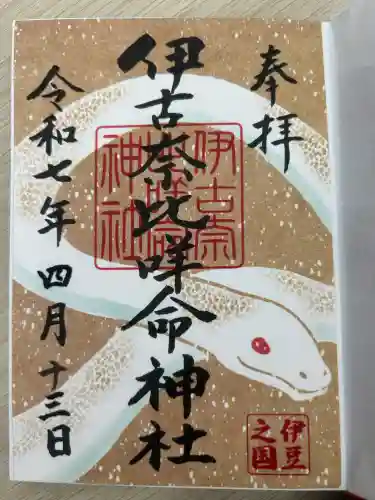 奉拝
伊古奈比咩命神社
伊古奈
比咩命
神社
令和七年四月十三日
伊豆
之国